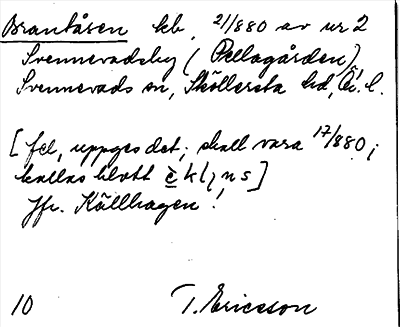 Brantåsen kb, 21/880 av nr 2
Svennevadsby (Pellagården),
Svennevads sn, Sköllersta hd, Ö.l.
[fel, uppges det; skall vara 17/880;
kallas blott
Jfr. Källhagen!
10 T. Ericsson